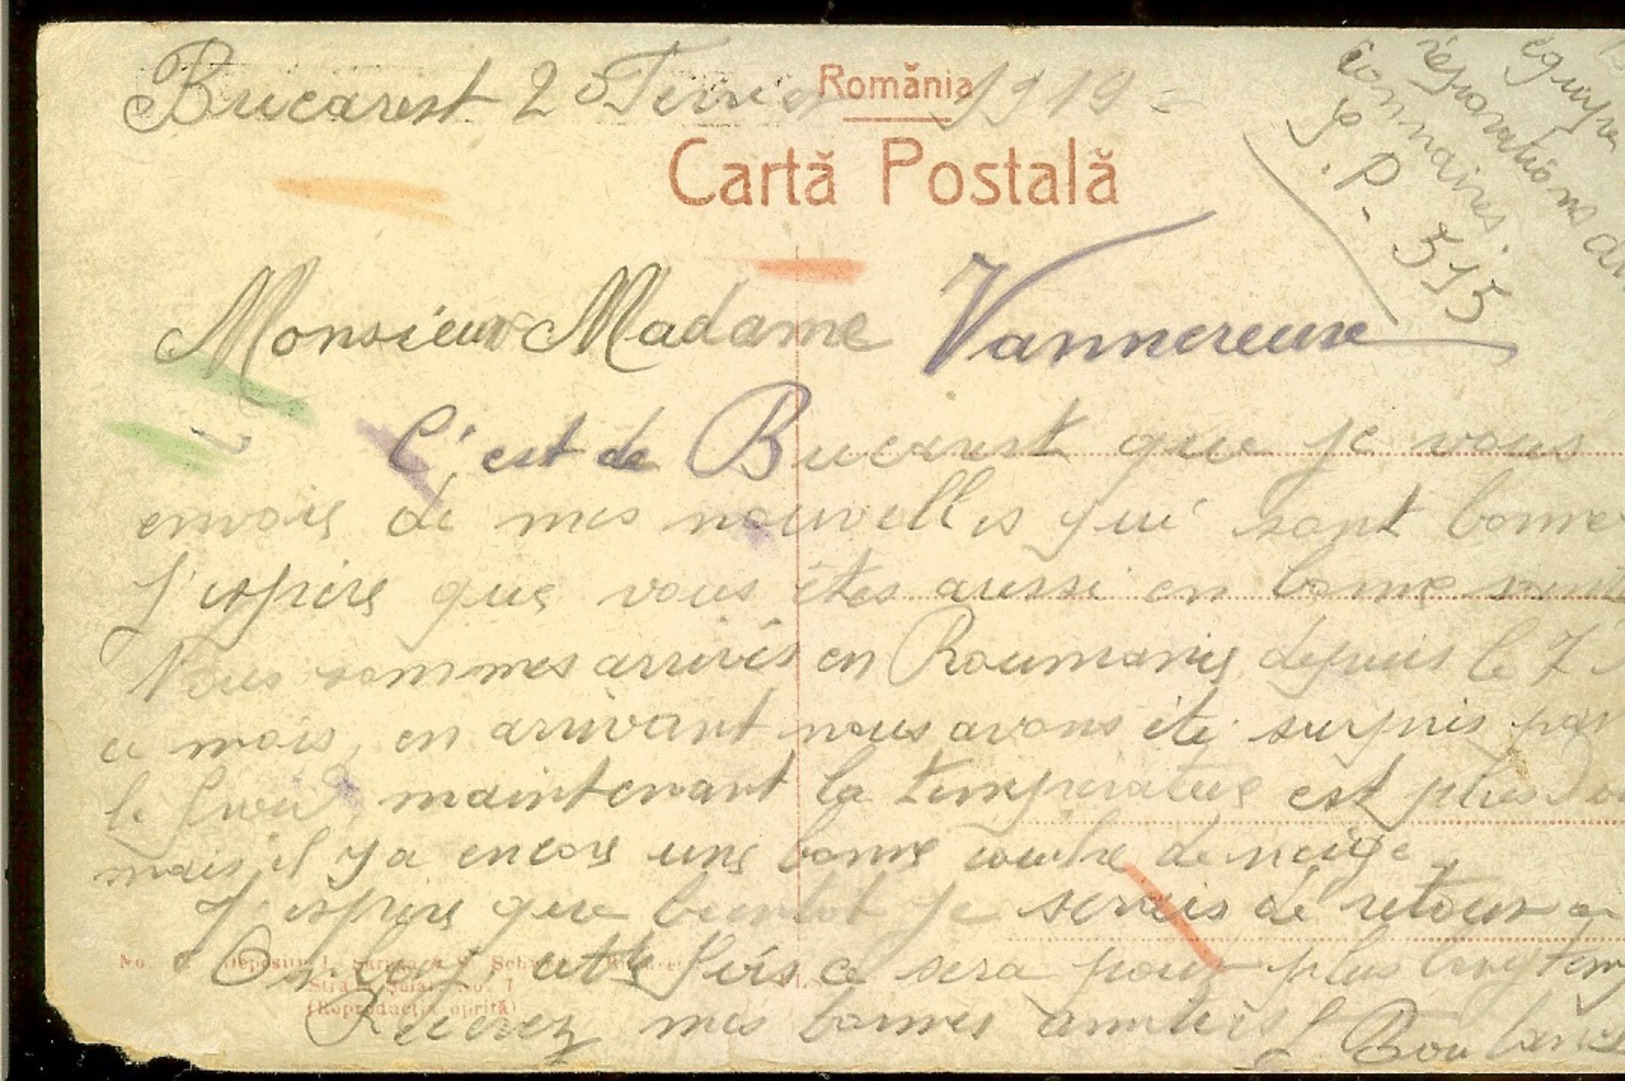 Bucarest 25 Fevrier 1919
România
Cartă Postală
équipe
réparations
connaires.
S.P. 515
Monsieur Madame Vannereuse
C'est de Bucarest que je vous
envois de mes nouvelles qui sont bonne
J'espère que vous êtes aussi en bonne santé
Nous sommes arrivés en Roumanie depuis le 7
ce mois, en arrivant nous avons été surpris par
le froid, maintenant la température est plus
mais il y a encore une bonne couche de neige.
J'espère que bientot je serais de retour
cette fois ce sera pour plus longtemp
No
(Reproducția oprită)
Recevez mes bonnes amitiés